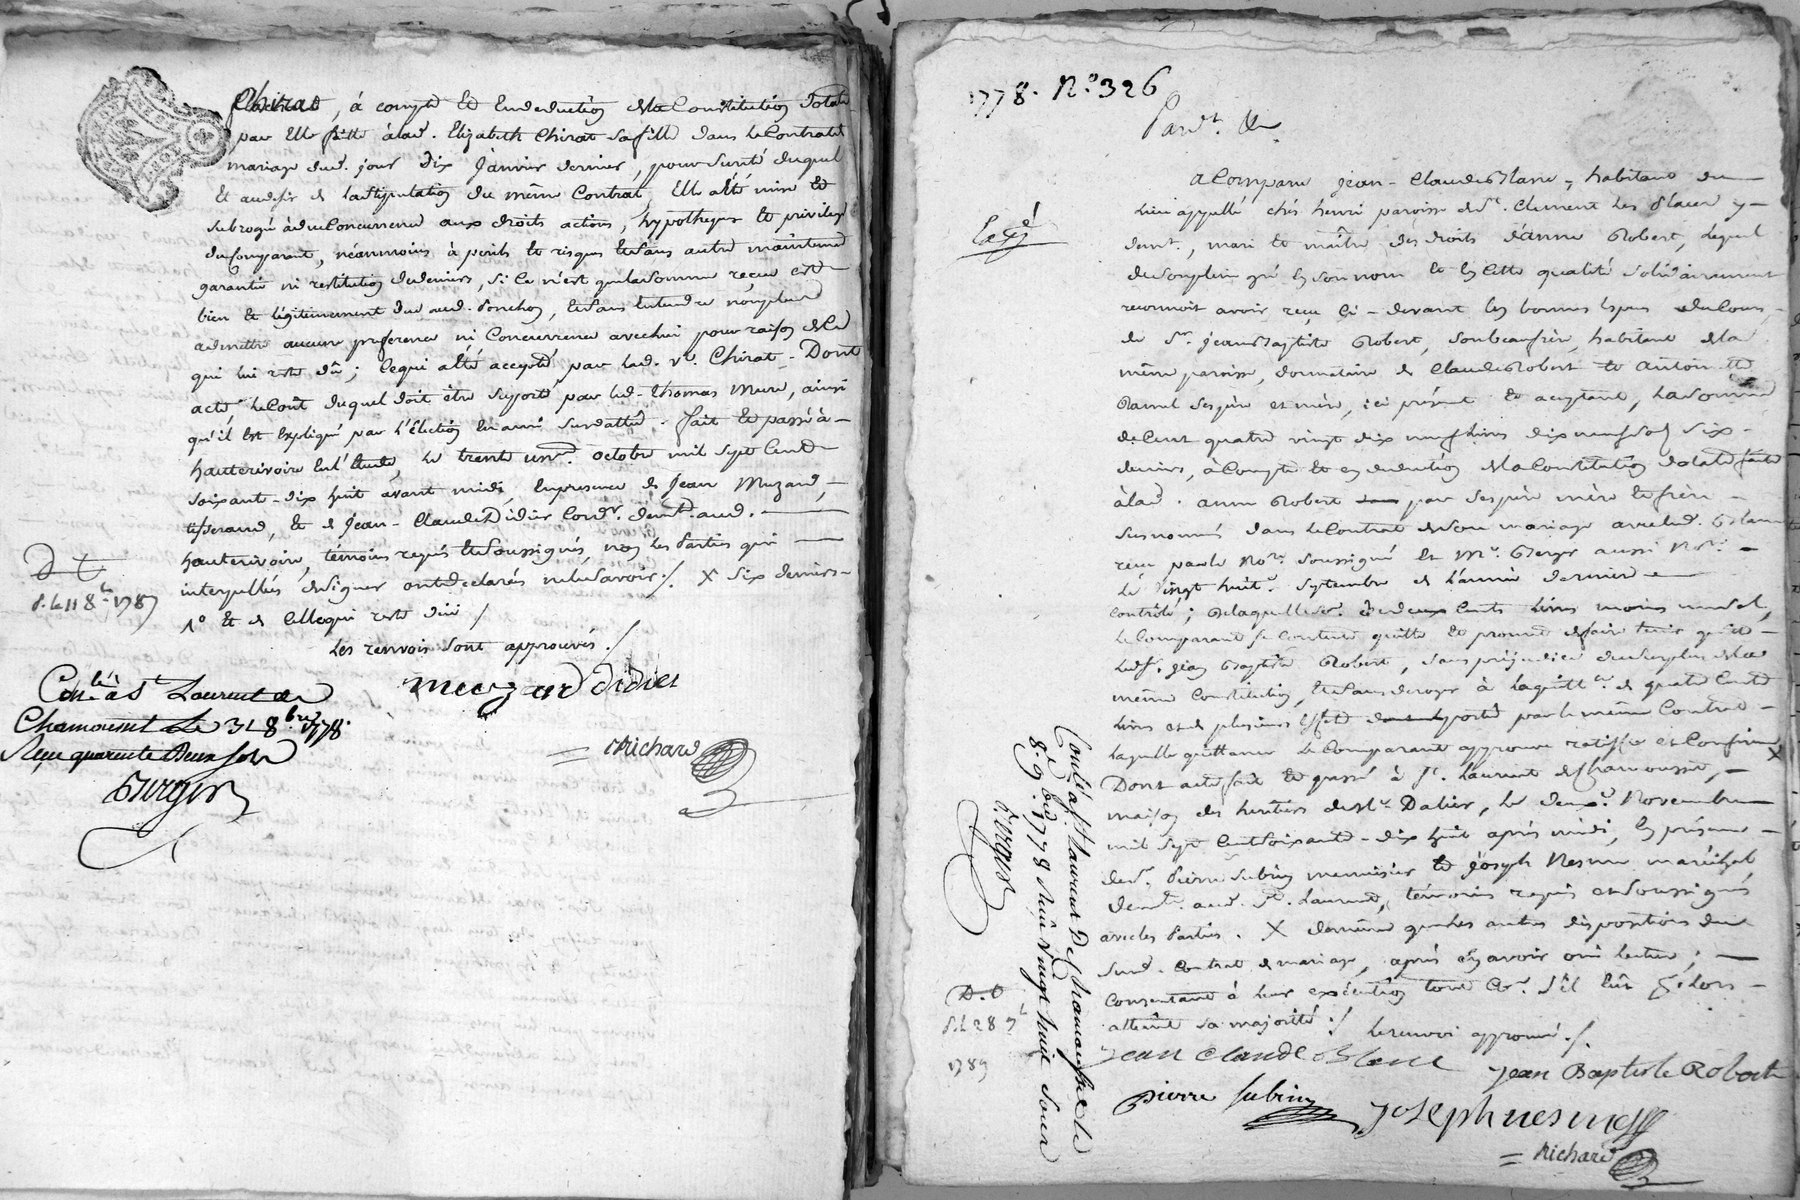 Chirat, à compte et en deduction de la Constitution dotale
par elle faitte à lad. Elizabeth Chirat sa fille dans le Contrat de
mariage dud. jour dix Janvier dernier, pour sureté duquel
et au desir de la stipulation du même Contrat, elle a été mise et
subrogé à due Concurrence aux droits actions, hypotheques et privileges
du Comparant, néanmoins à perils et risques et sans autre maintenue
garantie ni restitution de deniers, si ce n'est que la somme reçue est
bien et légitimement due aud. Ponchon, et sans entendre non plus
admettre aucune preference ni Concurrence avec lui pour raison de ce
qui lui reste dû; ce qui a été accepté par lad. ve. Chirat. Dont
acte, le Cout duquel doit être suporté par led. Thomas Mure, ainsi
qu'il est expliqué par l'élection en ami susdatte. fait et passé à
hauterivoire en l'étude, le trente un octobre mil sept Cent
soixante-dix huit avant midi, en presence de Jean Muzard,
tisserand, et de Jean-Claude Didier Cordr. demt. aud.
hauterivoire, témoins requis et soussignés, non les Parties qui
interpellées de signer ont declarés ne le savoir ./. X six deniers
1° et de celle qui reste düe /
D t
S. Le 11 8b 1787
Les renvois sont approuvés ./
Conlé à St Laurent de
Chamousset Le 31 8bre 1778.
Reçu quarente Deux sols
Berger
muzard didier
Richard
1778. N° 326
Pardt. &
A Comparu Jean-Claude Blanc, habitant du
lieu appellé chés henri paroisse de St. Clement les Places y
demt., mari et maître des droits d'anne Robert, lequel
de son plein gré en son nom et en cette qualité solidairement
reconnoit avoir reçu ci-devant en bonnes especes du Cours,
de Sr. Jean Baptiste Robert, son beaufrère, habitant de la
même paroisse, donnataire de Claude Robert et Antoinette
ses père et mère, ici présent et acceptant, la somme
de Cent quatre vingt dix neuf livres dix neuf sols six
deniers, à Compte et en deduction de la Constitution dotale faite
à lad. anne Robert par ses père mère et frère
susnommés dans le Contrat de son mariage avec led. Blanc
reçu par le Nore. soussigné et Mr. Berger aussi Nore.
le vingt huit septembre de l'année derniere
Contrôlé; de laquelle de deux Cents livres moins un sol,
le Comparant se Contente quitte et promet de faire tenir quitte
led. Sr. Jean Baptiste Robert, sans préjudice du surplus de la
même Constitution, et sans deroger à la quittce. de quatre Cents
livres et de plusieurs effets portée par le même Contrat
laquelle quittance le Comparant approuve ratiffie et Confirme X
Dont acte, fait et passé à St. Laurent de Chamousset,
maison des heritiers de Mr. Dalier, le deux Novembre
mil sept Cent soixante-dix huit après midi, en présence
de Sr. Pierre Subrin menuisier et Joseph Nesme maréchal,
demt. aud. St. Laurent, témoins requis et soussignés
avec les Parties. X de même que les autres dispositions du
susd. Contrat de mariage, après en avoir oüi lecture;
Consentant à leur exécution tout Coe. s'il eut lors
atteint sa majorité ./ le renvoi approuvé ./.
Conlé à St Laurent De Chamousset le
8 9bre 1778 Reçu Vingt huit sous
Berger
D. t
S. L 28 7b
1789
jean claude blanc
jean Baptiste Robert
pierre subrin
joseph nesme
Richard